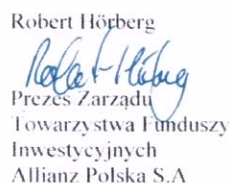 Robert Hörberg
Robert Hörberg
Prezes Zarządu
Towarzystwa Funduszy
Inwestycyjnych
Allianz Polska S.A